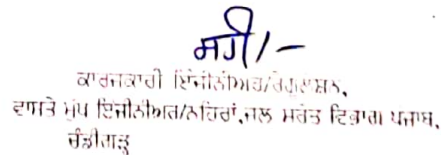 ਸਹੀ/-
ਕਾਰਜਕਾਰੀ ਇੰਜੀਨੀਅਰ/ਰੈਗੂਲੇਸ਼ਨ,
ਵਾਸਤੇ ਮੁੱਖ ਇੰਜੀਨੀਅਰ/ਨਹਿਰਾਂ,ਜਲ ਸਰੋਤ ਵਿਭਾਗ ਪੰਜਾਬ,
ਚੰਡੀਗੜ੍ਹ